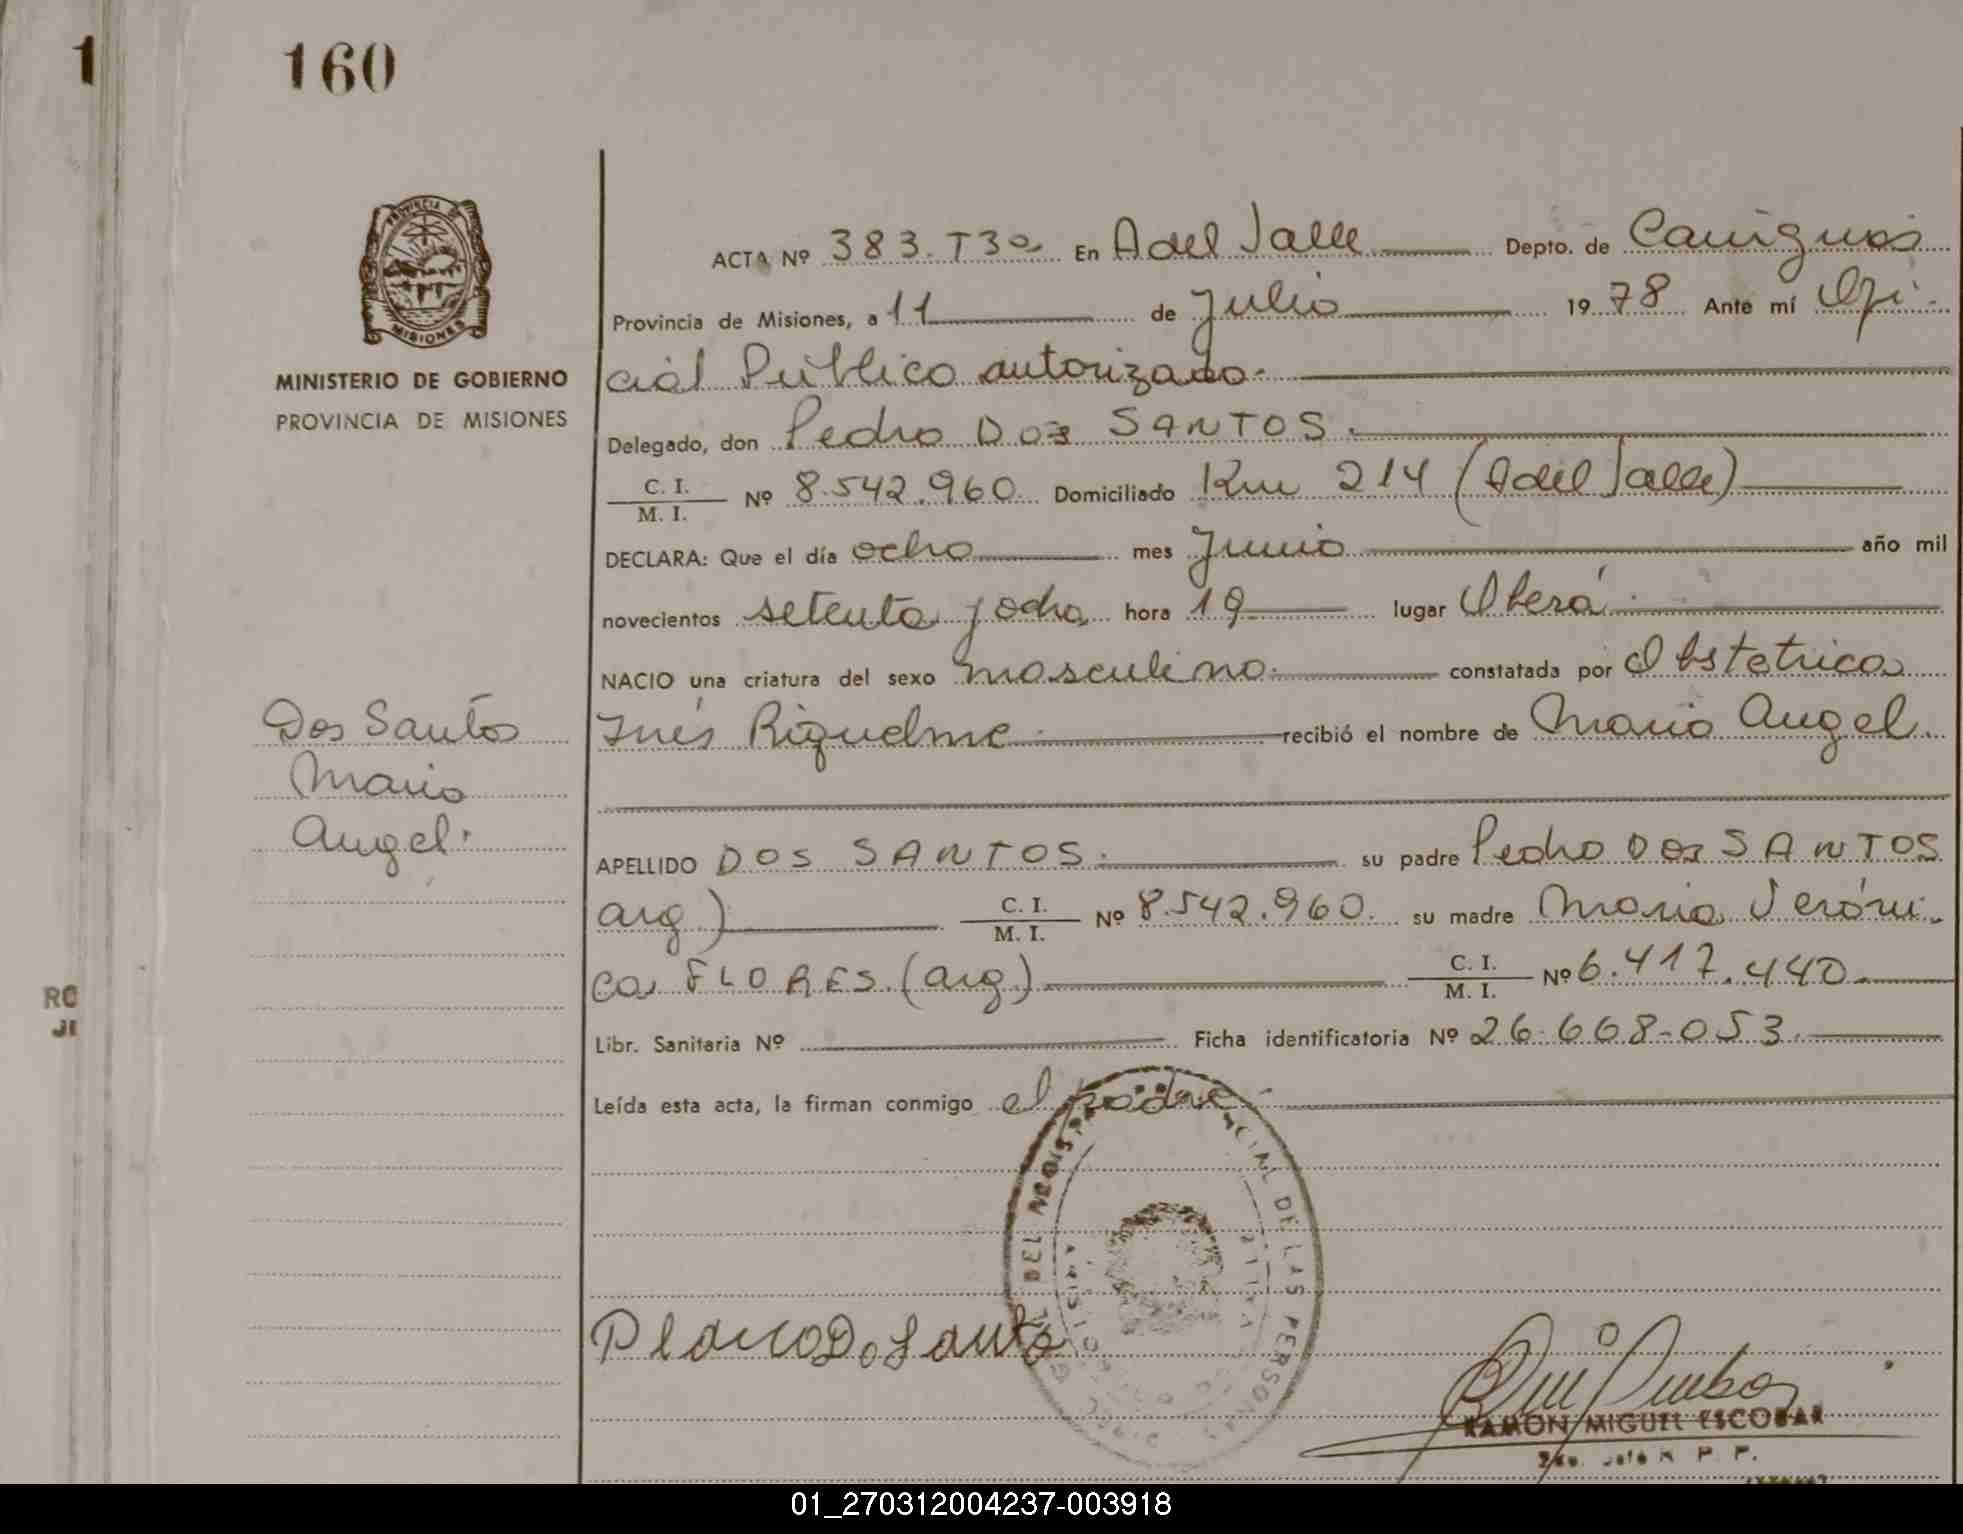 1
160
PROVINCIA DE
MISIONES
MINISTERIO DE GOBIERNO
PROVINCIA DE MISIONES
ACTA Nº 383.T3º En A del Valle Depto. de Cainguás
Provincia de Misiones, a 11 de Julio 1978 Ante mí Ofi-
cial Público autorizado.
Delegado, don Pedro Dos SANTOS.
C. I.
M. I. Nº 8.542.960 Domiciliado Km 214 (A del Valle)
DECLARA: Que el día ocho mes Junio año mil
novecientos setenta y ocho hora 19 lugar Oberá
NACIO una criatura del sexo masculino. constatada por Obstetrica
Inés Riquelme recibió el nombre de Mario Angel.
Dos Santos
Mario
Angel.
APELLIDO DOS SANTOS. su padre Pedro DOS SANTOS
arg) C. I.
M. I. Nº 8.542.960. su madre Maria Veróni-
ca FLORES (arg) C. I.
M. I. Nº 6.417.440
Libr. Sanitaria Nº Ficha identificatoria Nº 26-668-053.
RC
JE
Leída esta acta, la firman conmigo el padre
DEL DE LAS PERSONAS
RAMON MIGUEL ESCOBAR
R. P. P.
01_270312004237-003918